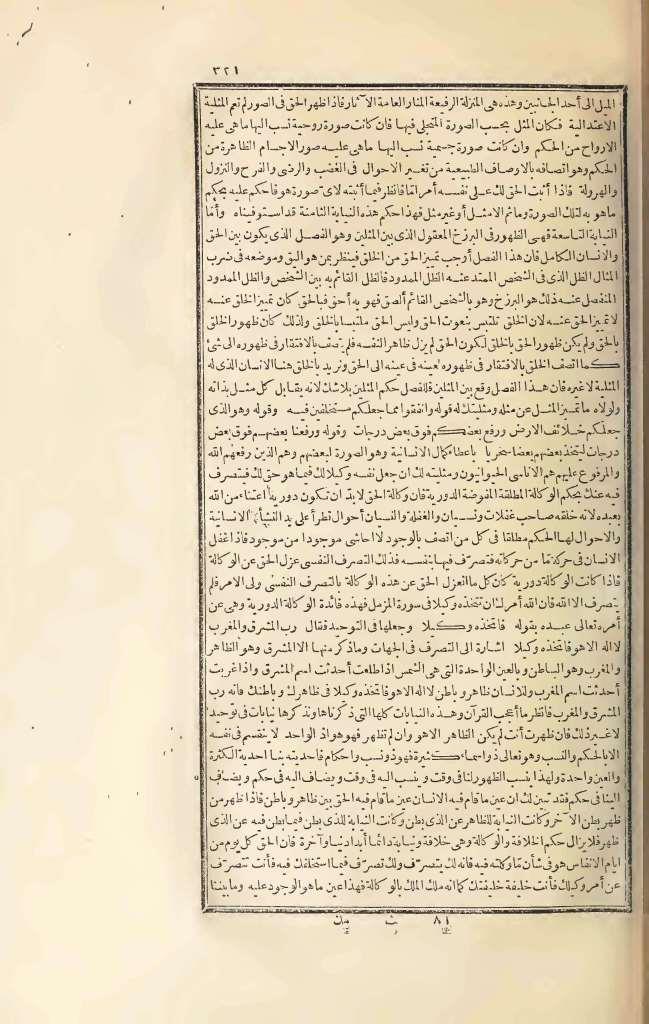 ٣٢١
الميل الى أحد الجانبين وهذه هى المنزلة الرفيعة المنار العامة الآثار فاذا ظهر الحق فى الصور لم تعم المثلية
الاعتدالية فكان المثل بحسب الصورة المتجلى فيها فان كانت صورة روحية نسب اليها ما هى عليه
الارواح من الحكم وان كانت صورة جسمية نسب اليها ما هى عليه صور الاجسام الظاهرة من
الحكم وهو اتصافه بالاوصاف الطبيعية من تغيير الاحوال فى الغضب والرضى والفرح والنزول
والهرولة فاذا أثبت الحق لك على نفسه أمرا ما فانظر فيما أثبته لاى صورة هو فاحكم عليه بحكم
ما هو به لتلك الصورة وما ثم الا مثل أو غير مثل فهذا حكم هذه النيابة الثامنة قد استوفيناه وأما
النيابة التاسعة فهى الظهور فى البرزخ المعقول الذى بين المثلين وهو الفصل الذى يكون بين الحق
والانسان الكامل فان هذا الفصل أوجب تمييز الحق من الخلق فينظر بمن هو أليق وموضعه فى ضرب
المثال الظل الذى فى الشخص الممتد عنه الظل الممدود فالظل القائم به بين الشخص والظل الممدود
المنفصل عنه ذلك هو البرزخ وهو بالشخص القائم ألصق فهو به أحق فبالحق كان تمييز الخلق عنه
لا تمييز الحق عنه لان الخلق تلبس بنعوت الحق وليس الحق ملتبسا بالخلق ولذلك كان ظهور الخلق
بالحق ولم يكن ظهور الحق بالخلق لكون الحق لم يزل ظاهرا لنفسه فلم يتصف بالافتقار فى ظهوره الى شئ
كما اتصف الخلق بالافتقار فى ظهوره لعينه فى عينه الى الحق ونريد بالخلق هنا الانسان الذى له
المثلية لا غيره فان هذا الفصل وقع بين المثلين فللفصل حكم المثلين بلا شك لانه يقابل كل مثل بذاته
ولولاه ما تميز المثل عن مثله ومثليتك له قوله وانفقوا مما جعلكم مستخلفين فيه وقوله وهو الذى
جعلكم خلائف الارض ورفع بعضكم فوق بعض درجات وقوله ورفعنا بعضهم فوق بعض
درجات ليتخذ بعضهم بعضا سخريا باعطاء كمال الانسانية وهو الصورة لبعضهم وهم الذين رفعهم الله
والمرفوع عليهم هم الاناسى الحيوانيون ومثليته لك ان جعل نفسه وكيلا لك فيما هو حق لك فيتصرف
فيه عنك بحكم الوكالة المطلقة المفوضة الدورية فان وكالة الحق لابد ان تكون دورية اعتناء من الله
بعبده لانه خلقه صاحب غفلات ونسيان والغفلة والنسيان أحوال تطرأ على يد النشأة الانسانية
والاحوال لها الحكم مطلقا فى كل من اتصف بالوجود لا أحاشى موجودا من موجود فاذا غفل
الانسان فى حركة ما من حركاته فتصرف فيها بنفسه فذلك التصرف النفسى عزل الحق عن الوكالة
فاذا كانت الوكالة دورية كان كل ما انعزل الحق عن هذه الوكالة بالتصرف النفسى ولى الامر فلم
يتصرف الا الله فان الله أمرك ان تتخذه وكيلا فى سورة المزمل فهذه فائدة الوكالة الدورية وهى عن
أمره تعالى عبده بقوله فاتخذه وكيلا وجعلها فى التوحيد فقال رب المشرق والمغرب
لا اله الا هو فاتخذه وكيلا اشارة الى التصرف فى الجهات وما ذكر منها الا المشرق وهو الظاهر
والمغرب وهو الباطن وبالعين الواحدة التى هى الشمس اذا طلعت أحدثت اسم المشرق واذا غربت
أحدثت اسم المغرب وللانسان ظاهر وباطن لا اله الا هو فاتخذه وكيلا فى ظاهرك وباطنك فانه رب
المشرق والمغرب فانظر ما أعجب القرآن وهذه النيابات كلها التى ذكرناها ونذكرها نيابات فى توحيد
لا غير ذلك فان ظهرت أنت لم يكن الظاهر الا هو وان لم تظهر فهو هو اذ الواحد لا ينقسم فى نفسه
الا بالحكم والنسب وهو تعالى ذو اسماء كثيرة فهو ذو نسب واحكام فاحديته بنا احدية الكثرة
والعين واحدة ولهذا ينسب الظهور لنا فى وقت وينسب اليه فى وقت ويضاف اليه فى حكم ويضاف
الينا فى حكم فقد تبين لك ان عين ما قام فيه الانسان عين ما قام فيه الحق بين ظاهر وباطن فاذا ظهر من
ظهر بطن الآخر وكانت النيابة للظاهر عن الذى بطن وكانت النيابة للذى بطن فيما بطن فيه عن الذى
ظهر فلا يزال حكم الخلافة والوكالة وهى خلافة ونيابة دائما أبدا دنيا وآخرة فان الحق كل يوم من
ايام الانفاس هو فى شأن ما وكلته فيه فانه لك يتصرف ولك تصرف فيما استخلفك فيه فأنت تتصرف
عن أمر وكيلك فأنت خليفة خليفتك كما انه ملك الملك بالوكالة فهذا عين ما هو الوجود عليه وما بيننا
٨١ ث